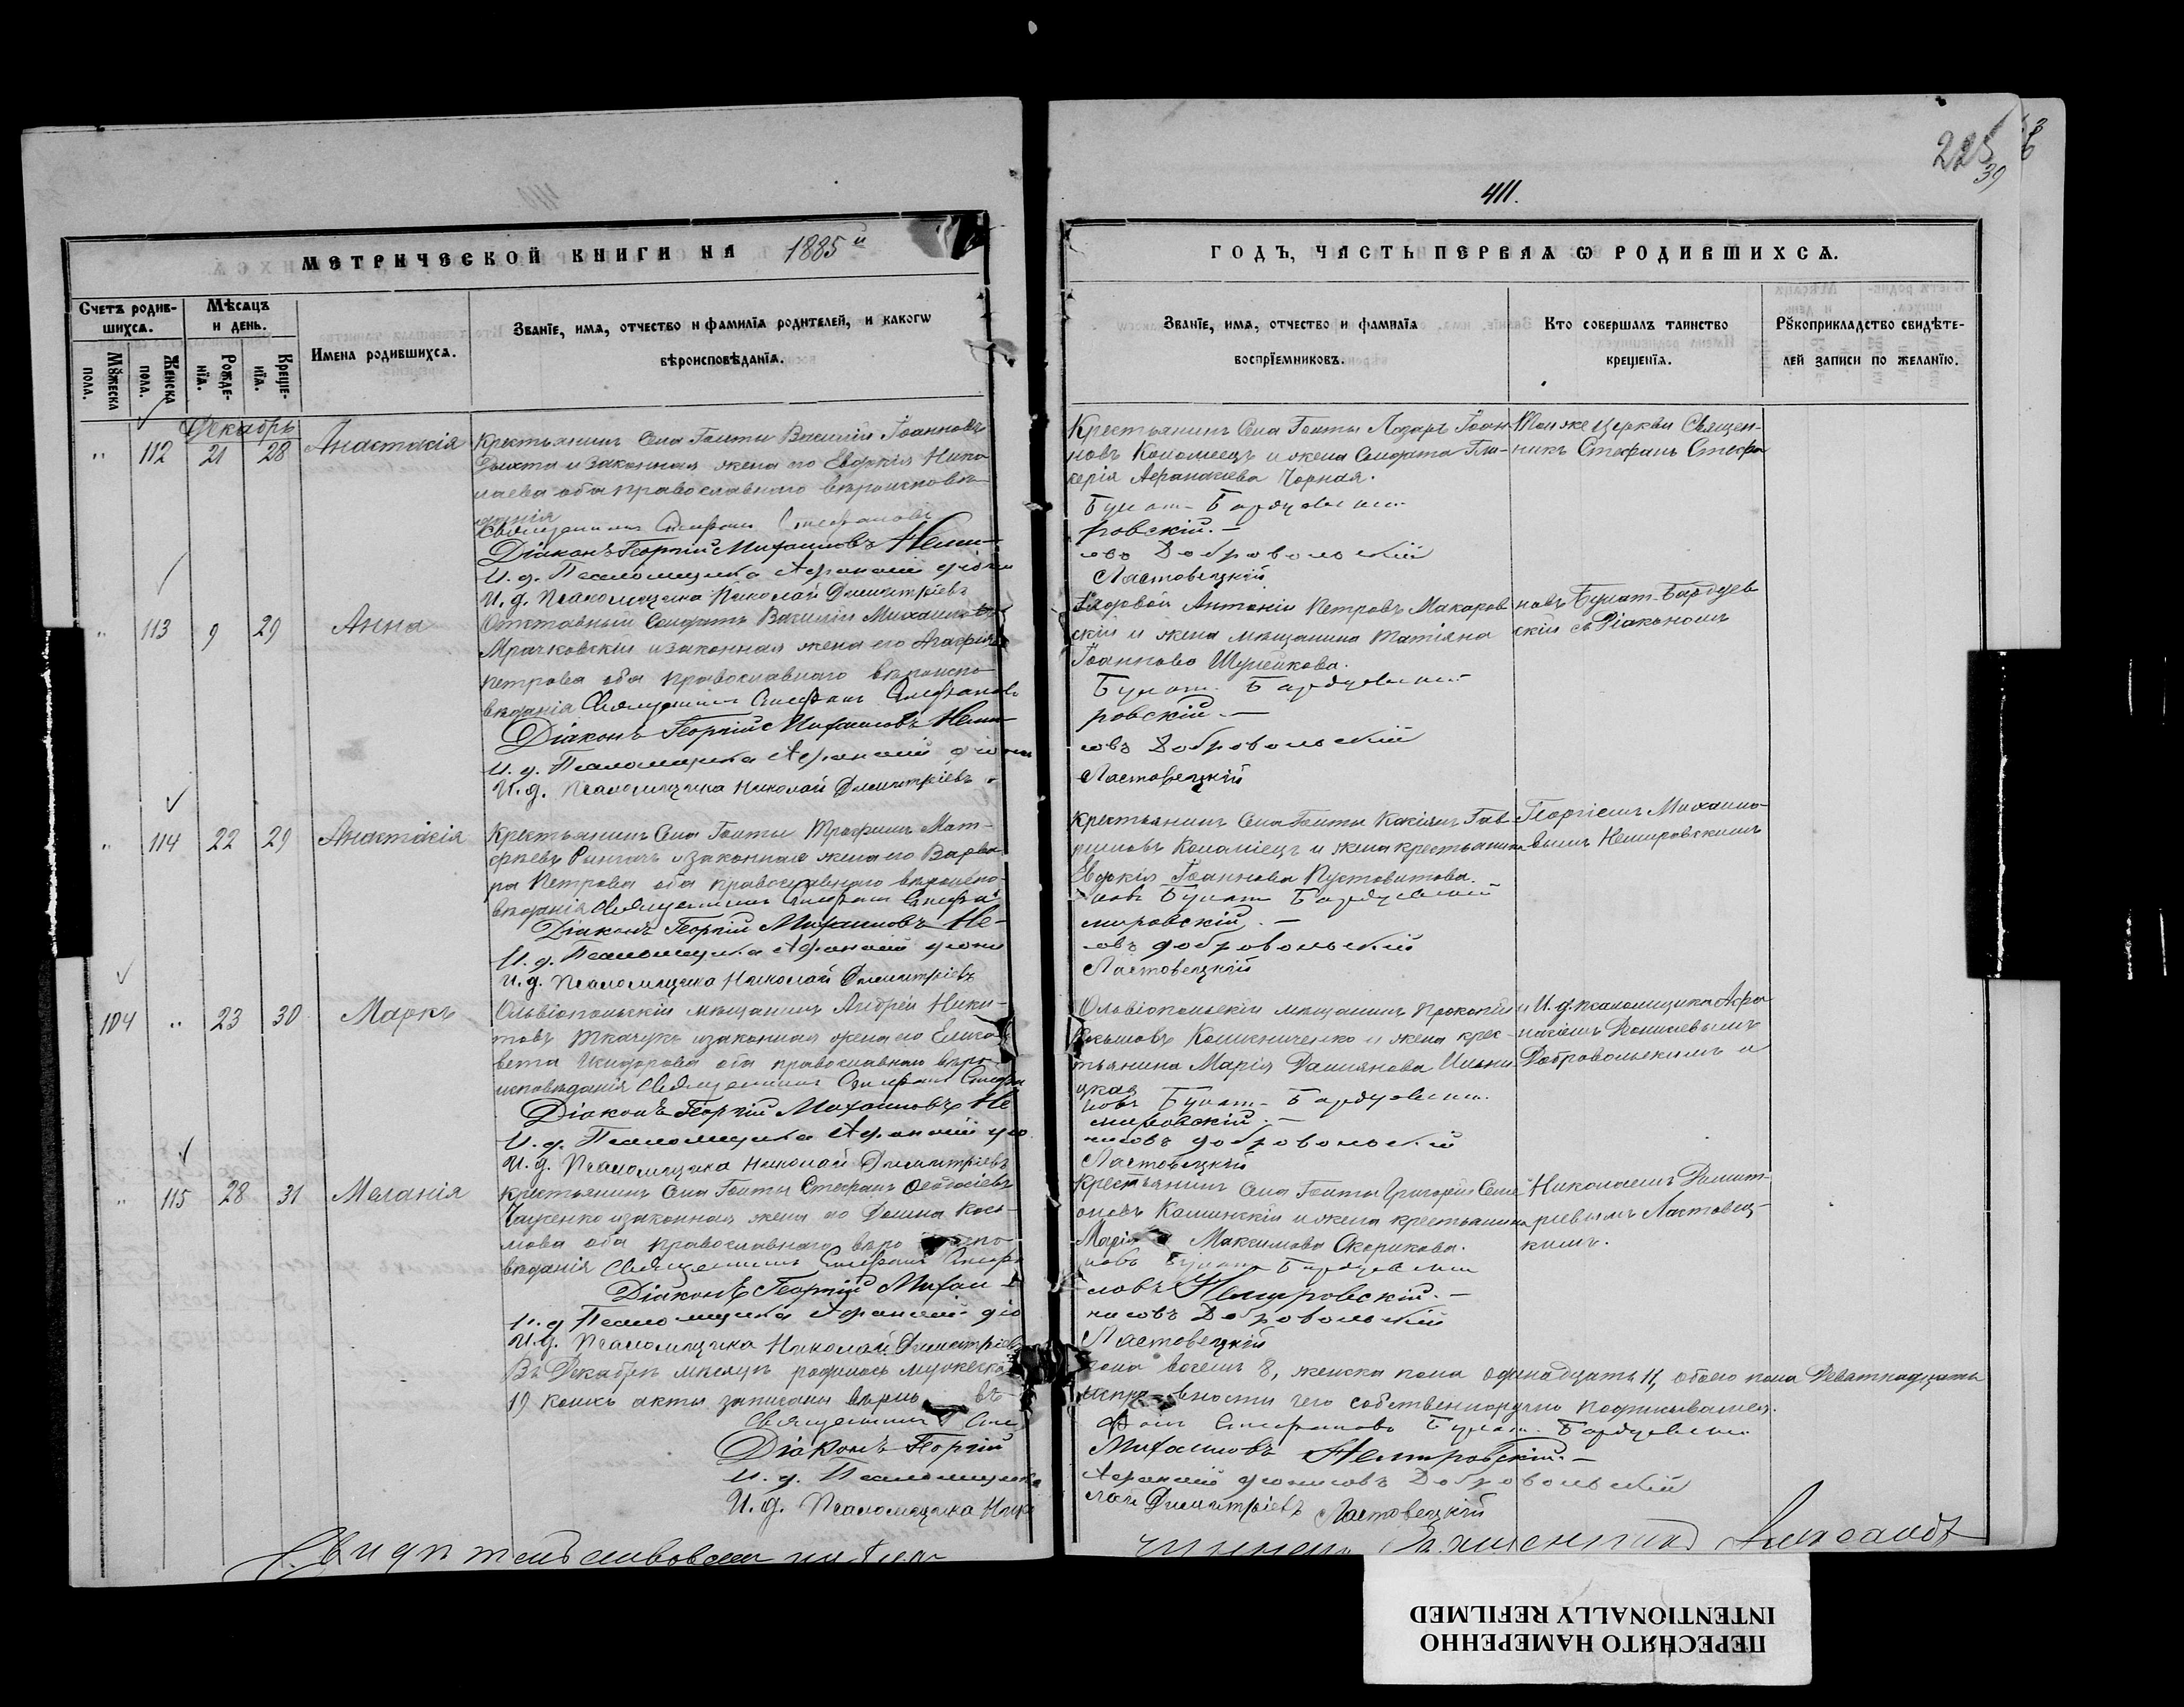 225
39
411.
МЕТРИЧЕСКОЙ КНИГИ НА 1885й
ГОДЪ, ЧАСТЬ ПЕРВАЯ Ѡ РОДИВШИХСѦ.
Счетъ родив-
шихсѧ.
Мѣсѧцъ
и день.
Имена родившихсѧ.
Званїе, имѧ, отчество и фамилїѧ родителей, и какогѡ
вѣроисповѣданїѧ.
Мꙋжеска
пола.
Женска
пола.
Рожде-
нїѧ.
Креще-
нїѧ.
Званїе, имѧ, отчество и фамилїѧ
воспрїемниковъ.
Кто совершалъ таинство
крещенїѧ.
Рꙋкоприкладство свидѣте-
лей записи по желанїю.
Декабрь
„ 112 21 28 Анастасія
Крестьянинъ Села Голты Василій Іоанновъ
и законная жена его Евдокія Нико
лаева оба православнаго вѣроисповѣ-
данія
Священникъ Стефанъ Стефановъ
Діаконъ Георгій Михаиловъ Неми-
И. д. Псаломщика Афанасій Діони
И. д. Псаломщика Николай Димитріевъ
Крестьянинъ Села Голты Лазарь Іоан
новъ Коломеецъ и жена Солдата Гли-
керія Афанасіева Чорная.
Булат-Бардуевскій
ровскій.-
совъ Добровольскій
Ластовецкій
Тоже церкви Священ-
никъ Стефанъ Стефа
„ 113 9 29 Анна
Отставный Солдатъ Василій Михаиловъ
Мрачковскій и законная жена его Агафія
Петрова оба православнаго вѣроиспо-
вѣданія Священникъ Стефанъ Стефановъ
Діаконъ Георгій Михаиловъ Неми-
И. д. Псаломщика Афанасій Діони
И. д. Псаломщика Николай Димитріевъ
Рядовой Антоній Петровъ Макаров
скій и жена мѣщанина Татіяна
Іоаннова Шулейкова.
Булат-Бардуевскій
ровскій.-
совъ Добровольскій
Ластовецкій
новъ Булат-Бардуев
скій съ Діакономъ
„ 114 22 29 Анастасія
Крестьянинъ Села Голты Трофимъ Мат-
фіевъ и законная жена его Варва
ра Петрова оба православнаго вѣроиспо-
вѣданія Священникъ Стефанъ Стефа
Діаконъ Георгій Михаиловъ Не-
И. д. Псаломщика Афанасій Діони
И. д. Псаломщика Николай Димитріевъ
Крестьянинъ Села Голты Гав
риловъ и жена крестьянина
Евдокія Іоаннова Пустовитова.
новъ Булат-Бардуевскій
мировскій.-
совъ Добровольскій
Ластовецкій
Георгіемъ Михаило-
вымъ Немировскимъ
104 „ 23 30 Маркъ
Ольвіопольскій мѣщанинъ Андрей Ники-
товъ Ткачукъ и законная жена его Елиса-
вета Исидорова оба православнаго вѣро-
исповѣданія Священникъ Стефанъ Стефа
Діаконъ Георгій Михаиловъ Не
И. д. Псаломщика Афанасій Діо
И. д. Псаломщика Николай Димитріевъ
Ольвіопольскій мѣщанинъ Прокопій
и жена крес-
тьянина Марія Даміянова
цкая
новъ Булат-Бардуевскій
мировскій.-
нисовъ Добровольскій
Ластовецкій
и И. д. псаломщика Афа
насіемъ Діонисіевымъ
Добровольскимъ и
„ 115 28 31 Меланія
Крестьянинъ Села Голты Стефанъ
и законная жена его Домна Кось-
мова оба православнаго вѣроиспо-
вѣданія Священникъ Стефанъ Стефа
Діаконъ Георгій Михаи-
И. д. Псаломщика Афанасій Діо
И. д. Псаломщика Николай Димитріевъ
Крестьянинъ Села Голты Григорій Симе
оновъ Калинскій и жена крестьянина
Марія Максимова Скорикова.
новъ Булат-Бардуевскій
ловъ Немировскій.-
нисовъ Добровольскій
Ластовецкій
Николаемъ Димит-
ріевымъ Ластовец-
кимъ.
Въ Декабрѣ мѣсяцѣ родилось мужеска пола восемъ 8, женска пола одинадцать 11, обоего пола девятнадцать
19 коихъ акты записаны вѣрно въ исправности чего собственноручно подписываемся.
Священникъ Стефанъ Стефановъ Булат-Бардуевскій
Діаконъ Георгій Михаиловъ Немировскій.-
И. д. Псаломщика Афанасій Діонисовъ Добровольскій
И. д. Псаломщика Николай Димитріевъ Ластовецкій
ПЕРЕСНЯТО НАМЕРЕННО
INTENTIONALLY REFILMED